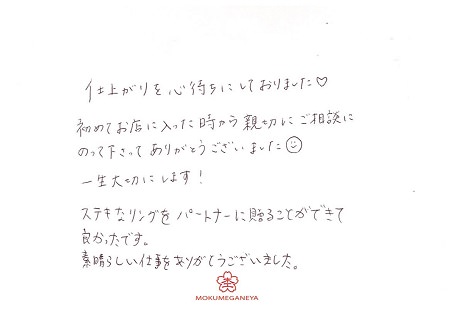 仕上がりを心待ちにしておりました♡
初めてお店に入った時から親切にご相談に
のって下さってありがとうございました☺
一生大切にします!
ステキなリングをパートナーに贈ることができて
良かったです。
素晴らしい仕事をありがとうございました。
MOKUMEGANEYA